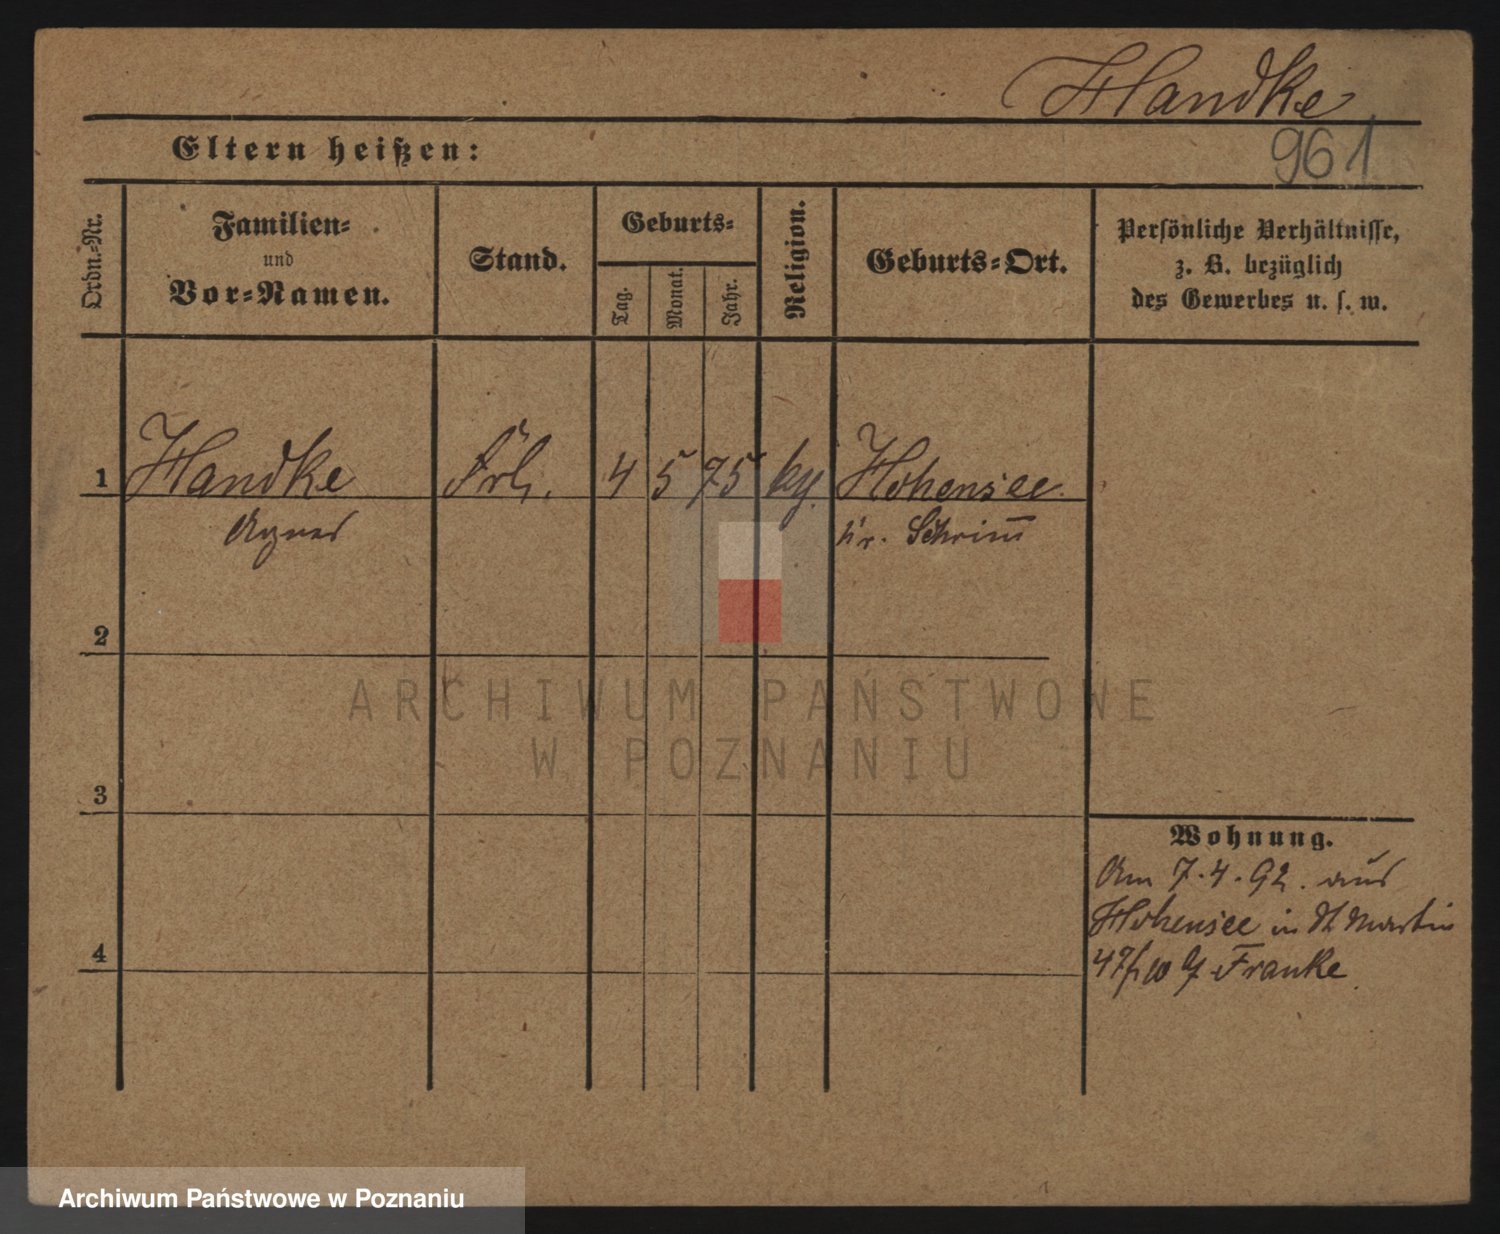 Handke
Eltern heißen:
961
Ordn.-Nr.
Familien-
und
Vor-Namen.
Stand.
Geburts-
Tag.
Monat.
Jahr.
Religion.
Geburts-Ort.
Persönliche Verhältnisse,
z. B. bezüglich
des Gewerbes u. s. w.
1 Handke Frl. 4 5 75 kg. Hohensee
Agnes Kr. Schrimm
2
3
4
Wohnung.
Am 7.4.92. aus
Hohensee in St Martin
47/ Franke
ARCHIWUM PAŃSTWOWE
W POZNANIU
Archiwum Państwowe w Poznaniu